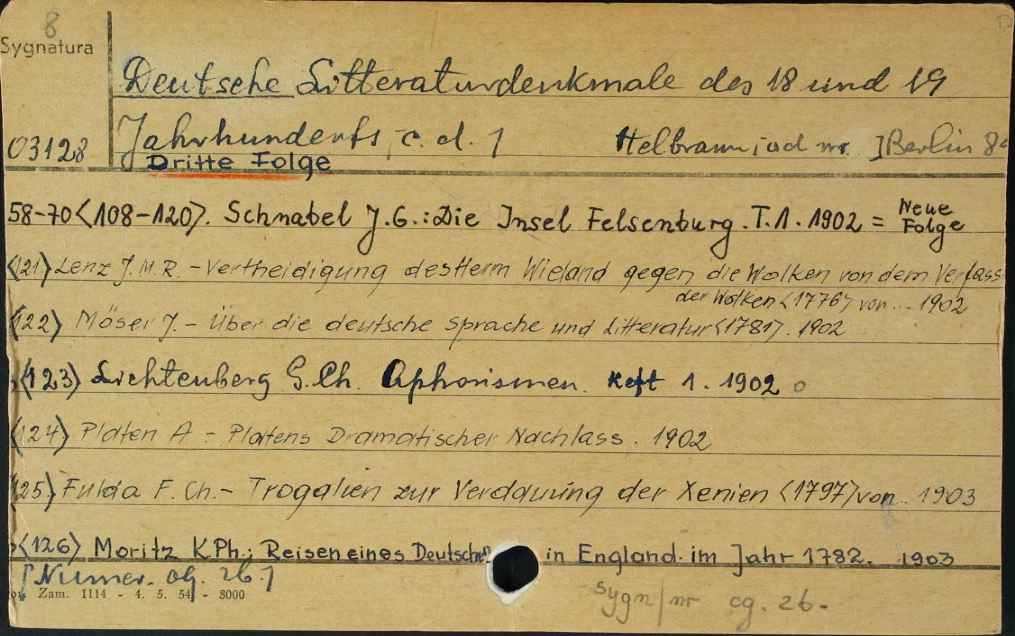 8
Sygnatura
Deutsche Litteraturdenkmale des 18 und 19
03128 Jahrhunderts, c. d. 1 Heilbraun; od nr. ] Berlin
Dritte Folge
58-70<108-120>. Schnabel J. G.: Die Insel Felsenburg. T. 1. 1902 = Neue Folge
<121> Lenz J. M. R. - Vertheidigung des Herrn Wieland gegen die Wolken von dem Verfass
der Wolken <1776> von ... 1902
<122> Möser J. - Über die deutsche Sprache und Litteratur <1781>. 1902
<123> Lichtenberg G. Ch. Aphorismen. Heft 1. 1902
<124> Platen A - Platens Dramatischer Nachlass. 1902
<125> Fulda F. Ch. - Trogalien zur Verdauung der Xenien <1797> von .. 1903
<126> Moritz K. Ph.: Reisen eines Deutsche in England im Jahr 1782. 1903
[Numer. og. zb.]
Zam. 1114 - 4. 5. 54 - 8000
sygn/nr og. zb.